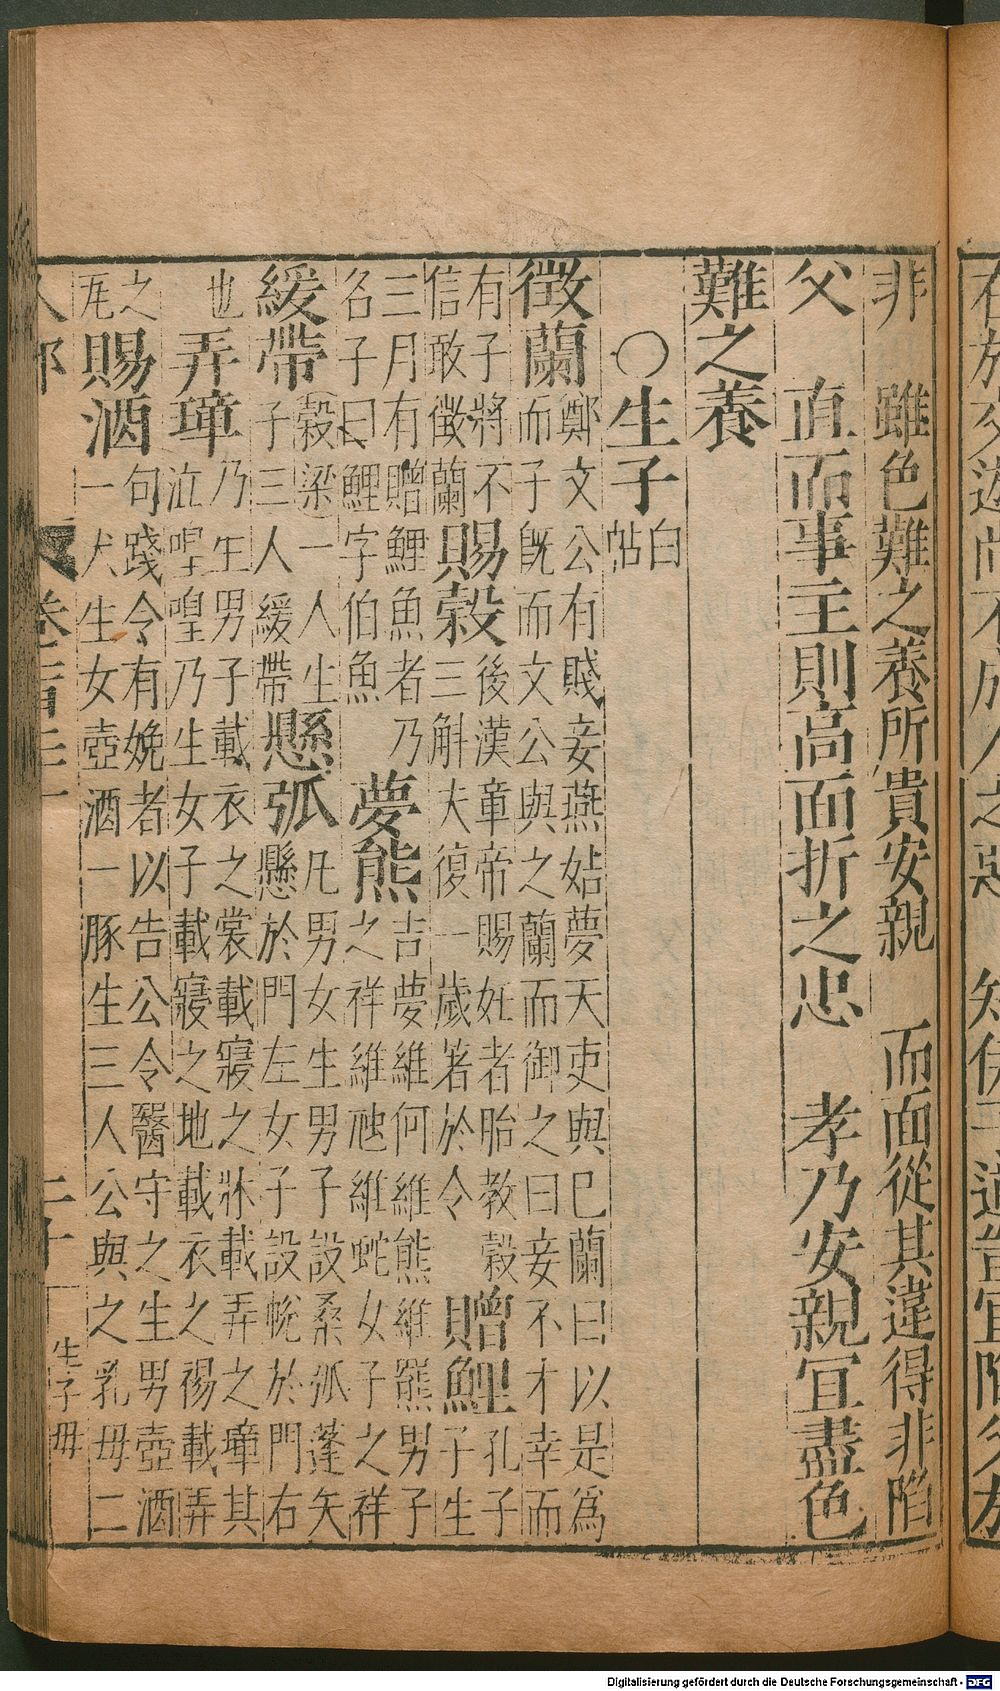 非　雖色難之養所貴安親　而面從其違得非陷
父　直而事主則高面折之忠　孝乃安親宜盡色
難之養
○生子白帖
徵蘭鄭文公有賤妾燕姞夢天吏與已蘭曰以是爲
而子旣而文公與之蘭而御之曰妾不才幸而
有子將不
信敢徵蘭
賜糓後漢章帝賜妊者胎教糓
三斛夫復一歲著於令
贈鯉孔子
子生
三月有贈鯉魚者乃
名子曰鯉字伯魚
夢熊吉夢維何維熊維羆男子
之祥維虺維蛇女子之祥
緩帶糓梁一人生
子三人緩帶
懸弧凡男女生男子設桑弧蓬矢
懸於門左女子設帨於門右
也
弄璋乃生男子載衣之裳載寢之牀載弄之璋其
泣喤喤乃生女子載寢之地載衣之裼載弄
之
瓦
賜酒句踐令有娩者以告公令醫守之生男壺酒
一犬生女壺酒一豚生三人公與之乳母二
人部
二十
生字母
Digitalisierung gefördert durch die Deutsche Forschungsgemeinschaft - DFG